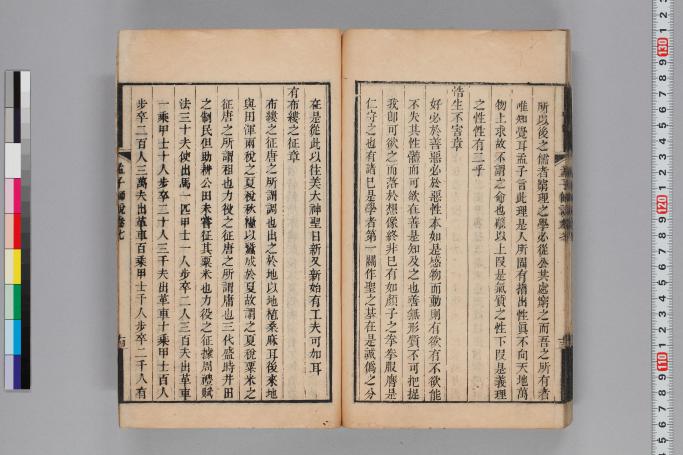 所以後之儒者窮理之學必從公共處窮之而吾之所有者
唯知覺耳孟子言此理是人所固有指出性眞不向天地萬
物上求故不謂之命也穩以上段是氣質之性下段是義理
之性性有二乎
浩生不害章
好必於善惡必於惡性本如是感物而動則有欲有不欲能
不失其性體而可欲在善是知及之也善無形質不可把捉
我卽可欲之而落於想像終非已有如顏子之拳拳服膺是
仁守之也有諸已是學者第一關作聖之基在是誠僞之分
在是從此以往美大神聖日新又新始有工夫可如耳
有布縷之征章
布縷之征唐之所謂調也出之於地以地植桑麻耳後來地
與田渾兩稅之夏稅秋糧以蠶成於夏故謂之夏稅粟米之
征唐之所謂租也力役之征唐之所謂庸也三代盛時井田
之制民但助耕公田未嘗征其粟米也力役之征據周禮賦
法三十夫使出馬一匹甲士一人步卒二人三百夫出革車
一乘甲士十人步卒二十人三千夫出革車十乘甲士百人
步卒二百人三萬夫出革車百乘甲士千人步卒二千人有
孟子師說卷七